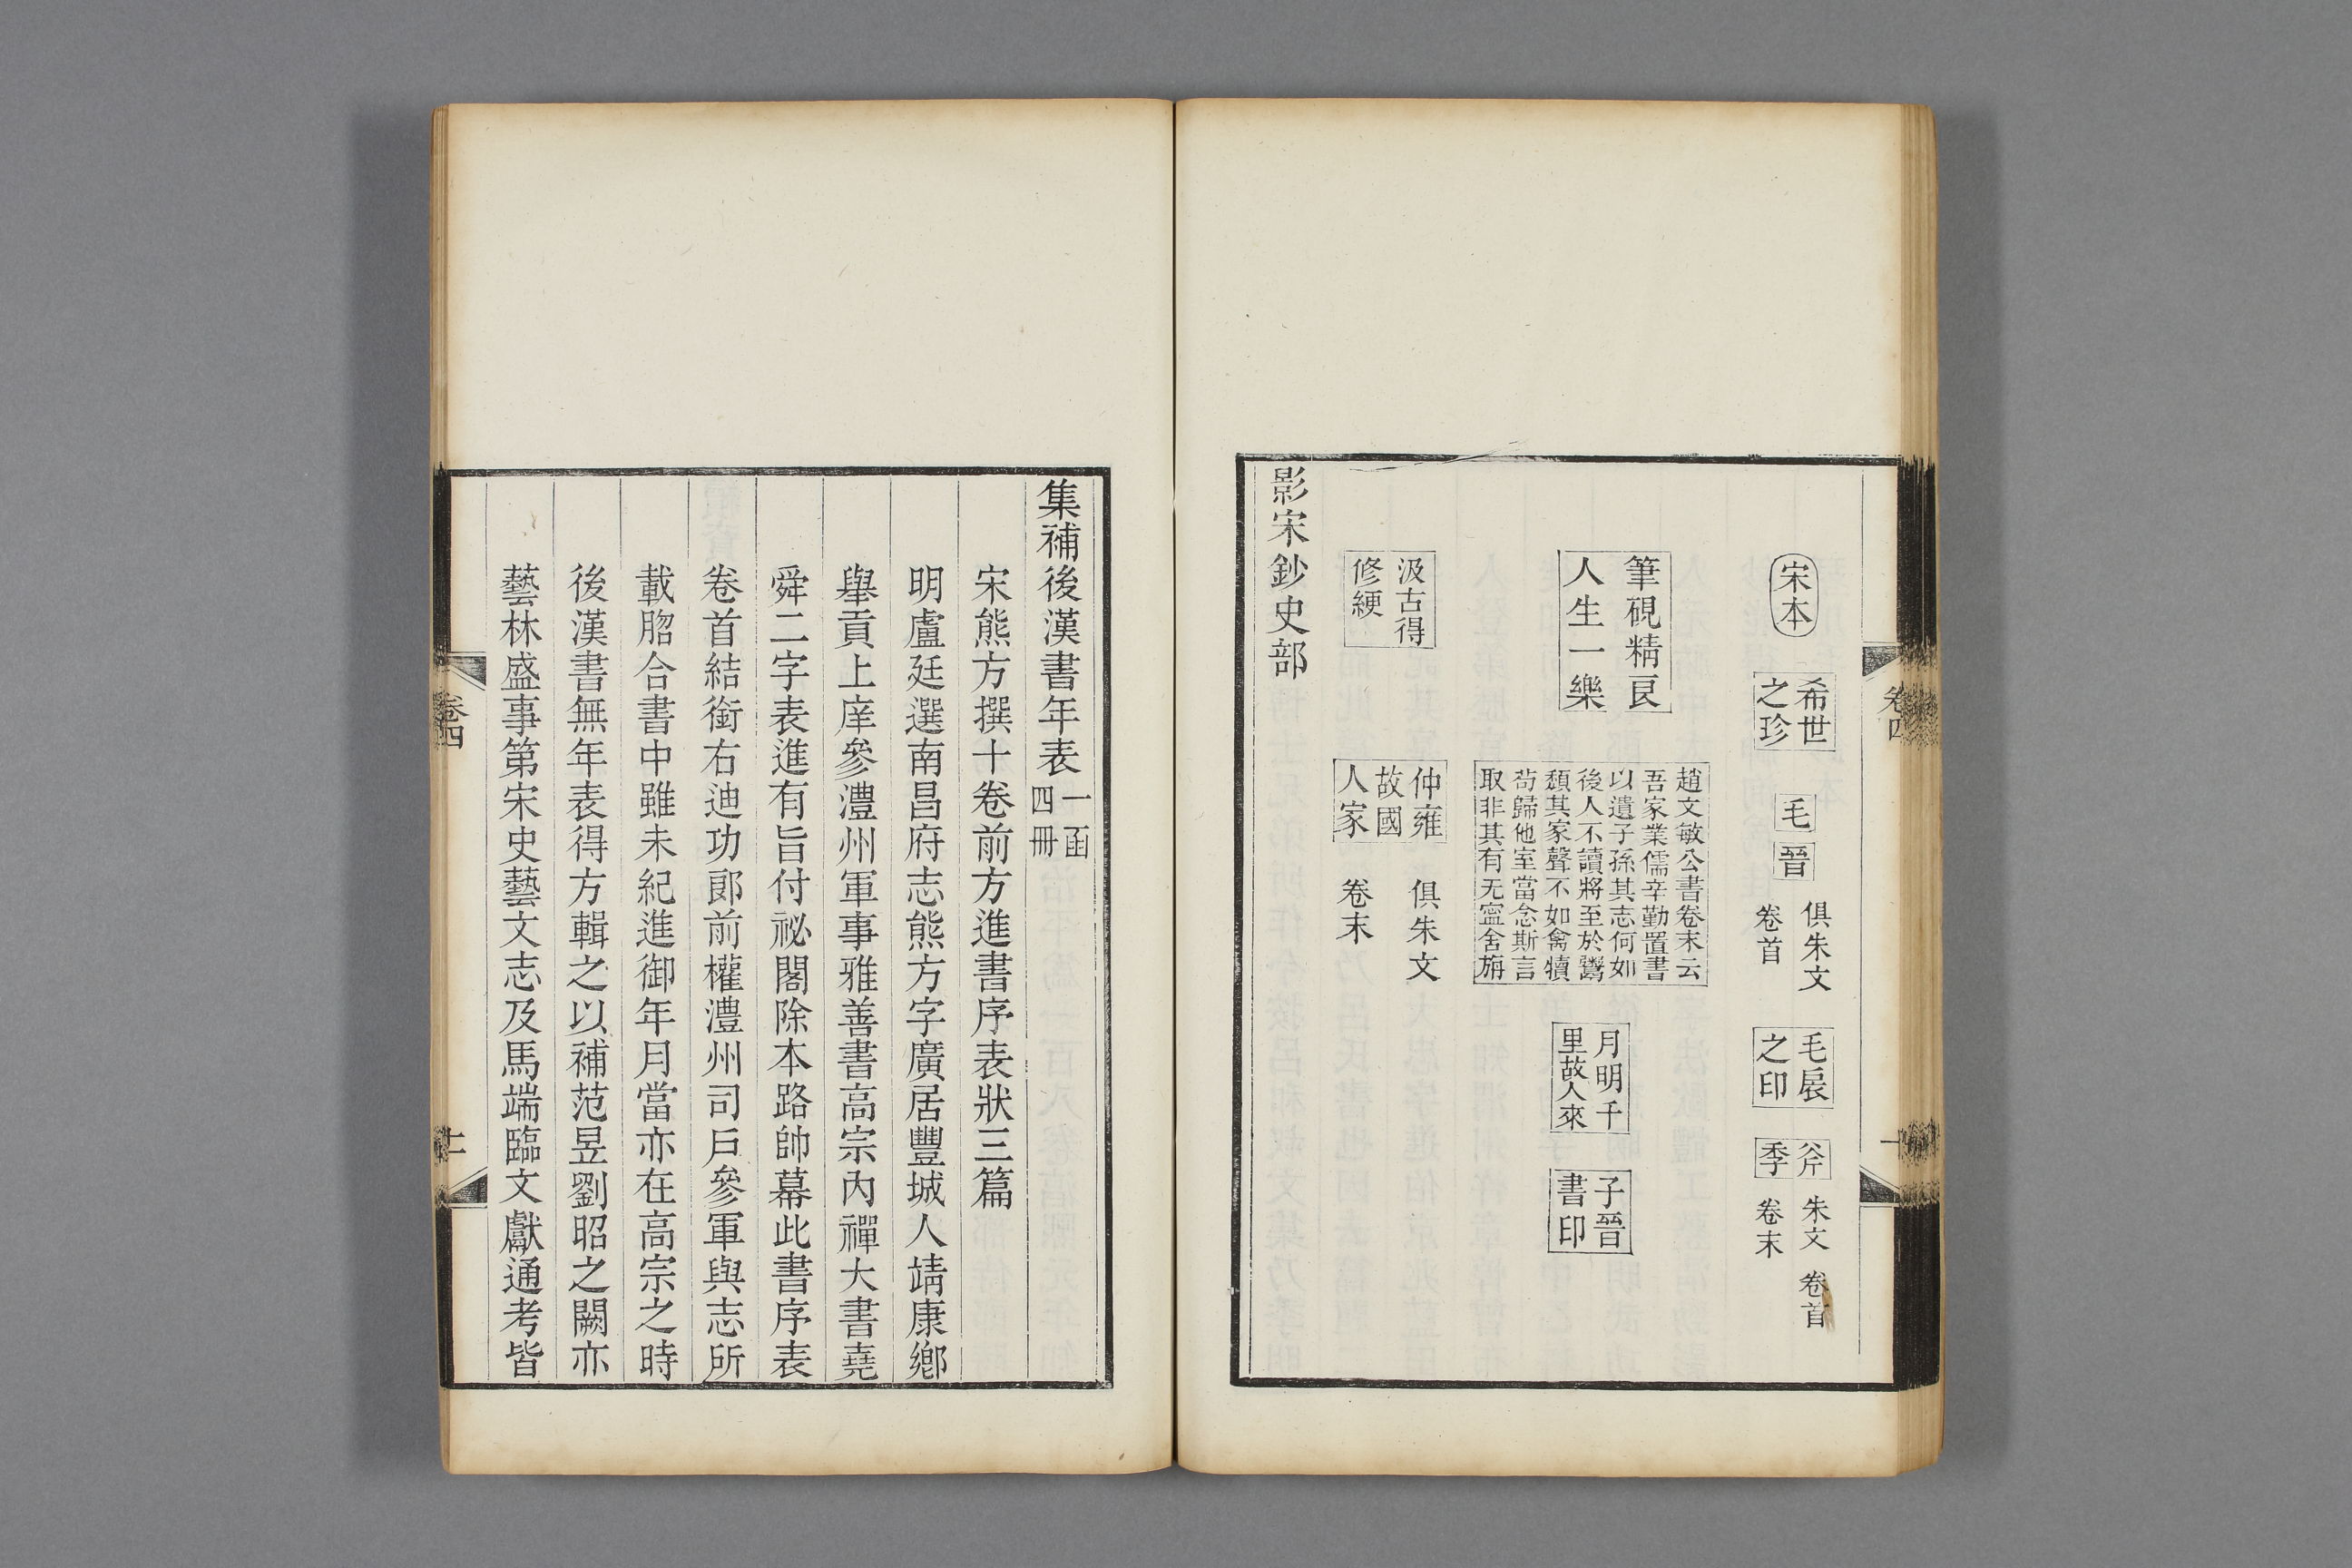 卷四
宋本
希世
之珍
毛
晉
俱朱文
卷首
毛扆
之印
斧
季
朱文 卷首
卷末
筆硯精良
人生一樂
趙文敏公書卷末云
吾家業儒辛勤置書
以遺子孫其志何如
後人不讀將至於鬻
頹其家聲不如禽犢
苟歸他室當念斯言
取非其有无寍舍旃
月明千
里故人來
子晉
書印
汲古得
修綆
仲雍
故國
人家
俱朱文
卷末
影宋鈔史部
集補後漢書年表
一函
四冊
宋熊方撰十卷前方進書序表狀三篇
明盧廷選南昌府志熊方字廣居豐城人靖康鄉
舉貢上庠參澧州軍事雅善書高宗內禪大書堯
舜二字表進有旨付祕閣除本路帥幕此書序表
卷首結銜右迪功郎前權澧州司戶參軍與志所
載脗合書中雖未紀進御年月當亦在高宗之時
後漢書無年表得方輯之以補范昱劉昭之闕亦
藝林盛事第宋史藝文志及馬端臨文獻通考皆
卷四